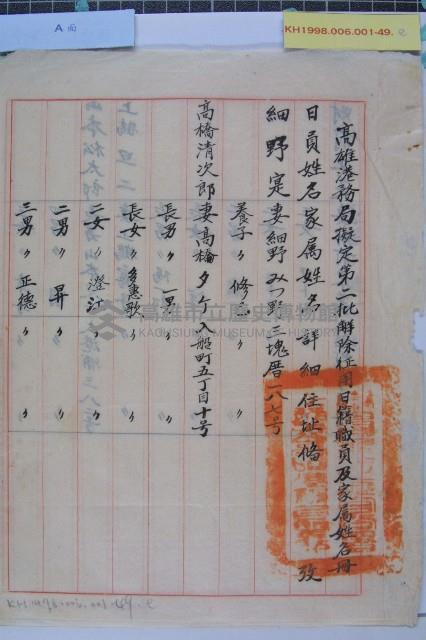 A面
KH1998.006.001-49.
高雄港務局擬定第二批解除征用日籍職員及家屬姓名冊
日員姓名 家屬姓名 詳細住址 備攷
細野寔 妻 細野みつ野 三塊厝一八七号
養子 〃 修
高橋清次郎 妻 高橋タケ 入船町五丁目十号
長男 〃 一男 〃
長女 〃 多惠歌 〃
二女 〃 澄江 〃
二男 〃 昇 〃
三男 〃 正德 〃
高雄市立歷史博物館
KAOHSIUNG MUSEUM OF HISTORY
KH1998.006.001-49.2